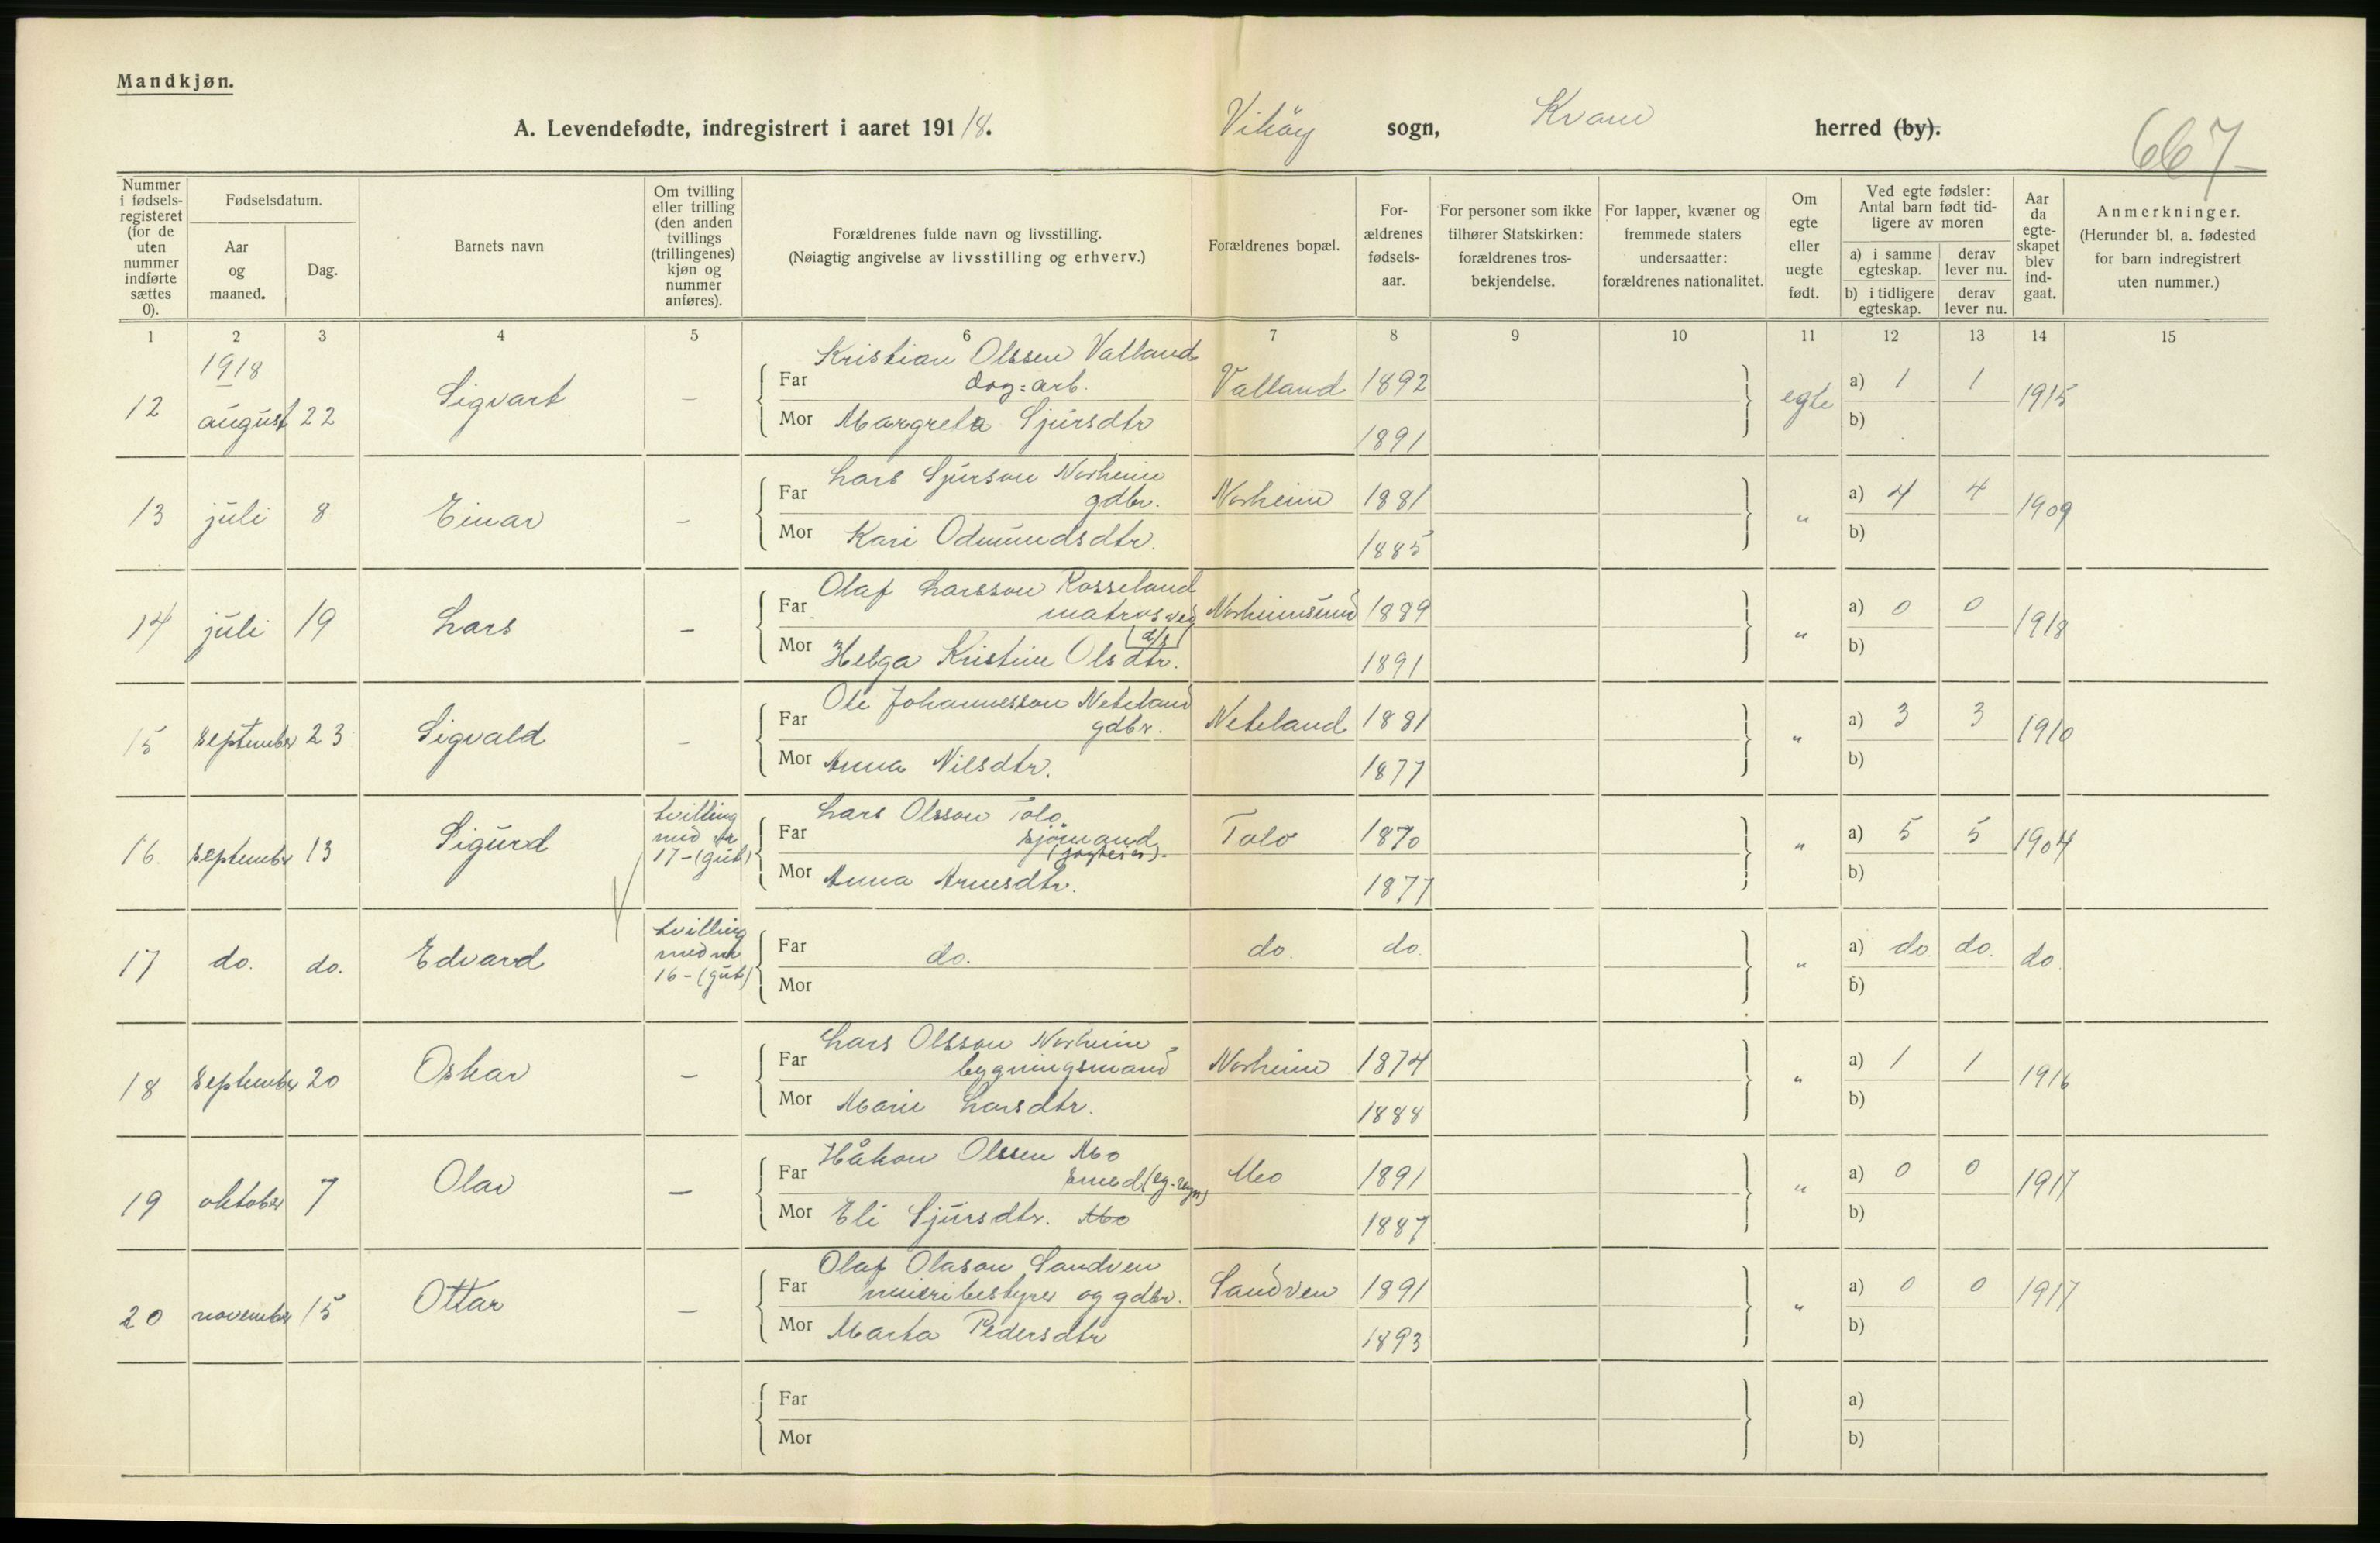 Mandkjøn.
A. Levendefødte, indregistrert i aaret 1918. Viköy sogn, Kvam herred (by). 667
Nummer i fødsels-registeret (for de uten nummer indførte sættes 0).
Fødselsdatum.
Aar og maaned.
Dag.
Barnets navn
Om tvilling eller trilling (den anden tvillings (trillingenes) kjøn og nummer anføres).
Forældrenes fulde navn og livsstilling.
(Nøiagtig angivelse av livsstilling og erhverv.)
Forældrenes bopæl.
For-ældrenes fødsels-aar.
For personer som ikke tilhører Statskirken: forældrenes tros-bekjendelse.
For lapper, kvæner og fremmede staters undersaatter: forældrenes nationalitet.
Om egte eller uegte født.
Ved egte fødsler: Antal barn født tid-ligere av moren
a) i samme egteskap.
derav lever nu.
b) i tidligere egteskap.
derav lever nu.
Aar da egte-skapet blev ind-gaat.
Anmerkninger.
(Herunder bl. a. fødested for barn indregistrert uten nummer.)
1 2 3 4 5 6 7 8 9 10 11 12 13 14 15
1918
12 august 22 Sigvart –
Far Kristian Olssen Valland
dag-arb. Valland 1892 egte a) 1 1 1915
Mor Margreta Sjursdtr 1891 b)
13 juli 8 Einar –
Far Lars Sjurson Norheim
gdbr. Norheim 1881 „ a) 4 4 1909
Mor Kari Odmundsdtr. 1885 b)
14 juli 19 Lars –
Far Olaf Larsson Rosseland
matros ved Norheimsund 1889 „ a) 0 0 1918
(d/s)
Mor Helga Kristine Olsdtr. 1891 b)
15 september 23 Sigvald –
Far Ole Johannesson Neteland
gdbr. Neteland 1881 „ a) 3 3 1910
Mor Anna Nilsdtr. 1877 b)
16 september 13 Sigurd tvilling med nr 17-(gut)
Far Lars Olsson Tolo
sjömand
(jagteier). Tolo 1870 „ a) 5 5 1904
Mor Anna Arnesdtr. 1877 b)
17 do. do. Edvard tvilling med nr 16-(gut)
Far do. do. do. „ a) do. do. do.
Mor b)
18 september 20 Oskar –
Far Lars Olsson Norheim
bygningsmand Norheim 1874 „ a) 1 1 1916
Mor Marie Larsdtr. 1888 b)
19 oktober 7 Olav –
Far Håkon Olssen Mo
smed Mo 1891 „ a) 0 0 1917
Mor Eli Sjursdtr. Mo 1887 b)
20 november 15 Ottar –
Far Olaf Olason Sandven
meieribestyrer og gdbr. Sandven 1891 „ a) 0 0 1917
Mor Marta Pedersdtr 1893 b)
Far a)
Mor b)